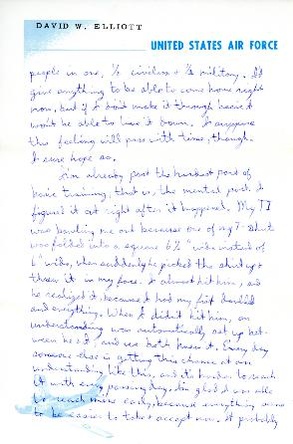 DAVID W. ELLIOTT
UNITED STATES AIR FORCE
people in one, ½ civilian + ½ military. I'd
give anything to be able to come home right
now, but if I don't make it through basic I
won't be able to live it down. I suppose
this feeling will pass with time, though.
I sure hope so.
I'm already past the hardest part of
basic training, that is, the mental part. I
figured it out right after it happened. My TI
was bawling me out because one of my T-shirt
was folded into a square 6¼" wide instead of
6" wide, when suddenly he picked the shirt up +
threw it in my face. I almost hit him, and
he realized it, because I had my fist doubled
and everything. When I didn't hit him, an
understanding was automatically set up bet-
ween he + I, and we both knew it. Every day
someone else is getting this chance at an
understanding like this, and it's harder to reach
it with every passing day. I'm glad I was able
to reach mine early, because everything seems
to be easier to take + accept now. It probably